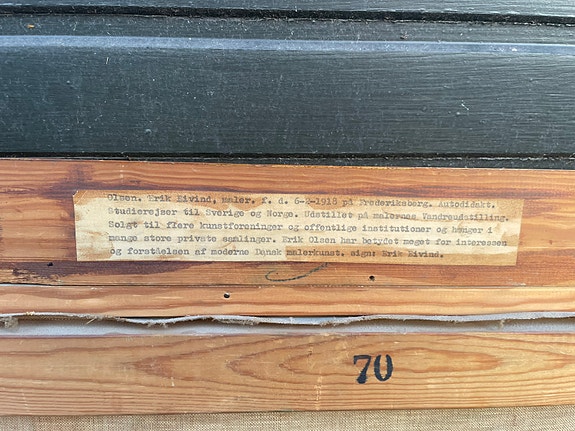 Olsen. Erik Eivind, maler. f. d. 6-2-1918 på Frederiksberg. Autodidakt.
Studierejser til Sverige og Norge. Udstillet på malernes Vandreudstilling.
Solgt til flere kunstforeninger og offentlige institutioner og hænger i
mange store private samlinger. Erik Olsen har betydet meget for interessen
og forståelsen af moderne Dansk malerkunst. sign: Erik Eivind.
70